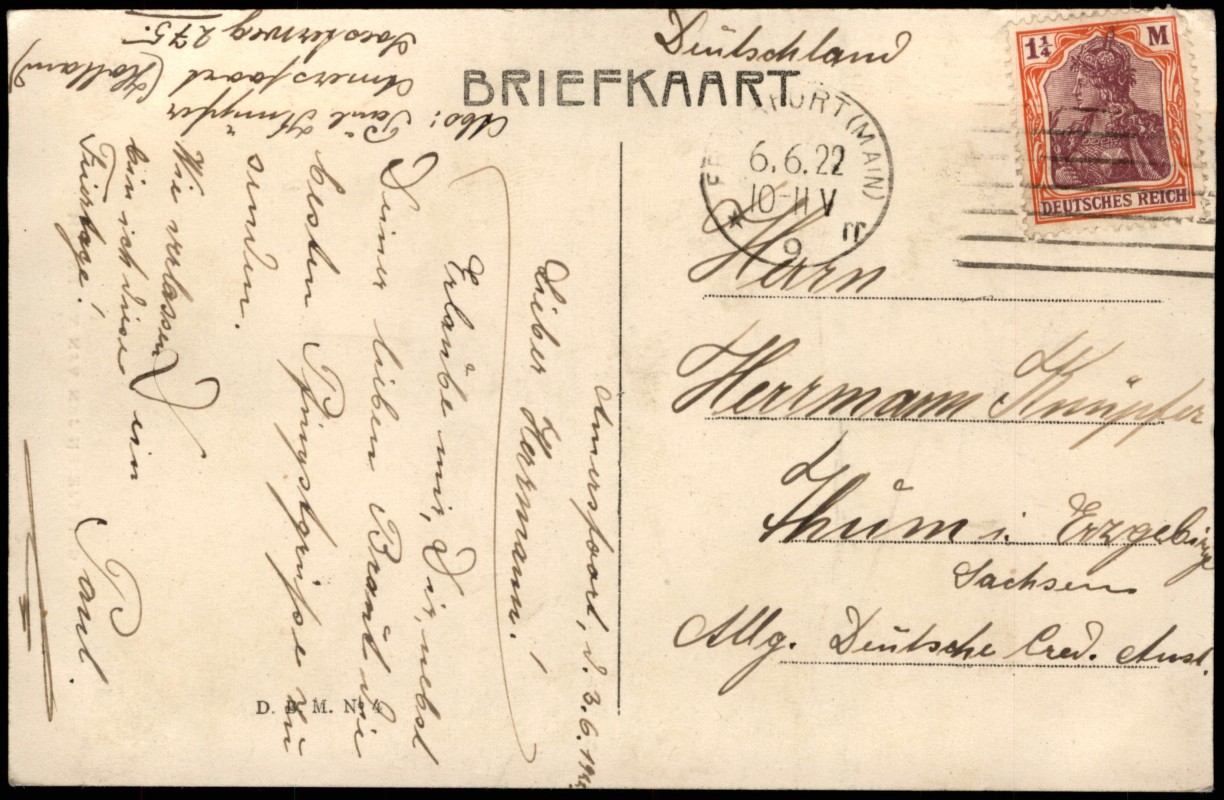 Deutschland
BRIEFKAART
FURT (MAIN)
6.6.22
10-11 V
9
1¼ M
DEUTSCHES REICH
Herrn
Herrmann Knüpfer
Thum i. Erzgebirge
Sachsen
Allg. Deutsche Cred. Anst.
Amersfoort, d. 3.6.19
Lieber Hermann!
Erlaube mir, Dir, nebst
Deiner lieben Braut die
besten Pfingstgrüße zu
senden.
Wie verlassen
bin ich diese
Feiertage!
Dein
Paul.
Abs: Paul Knüpfer
Amersfoort (Holland)
275.
D. B. M. No 4